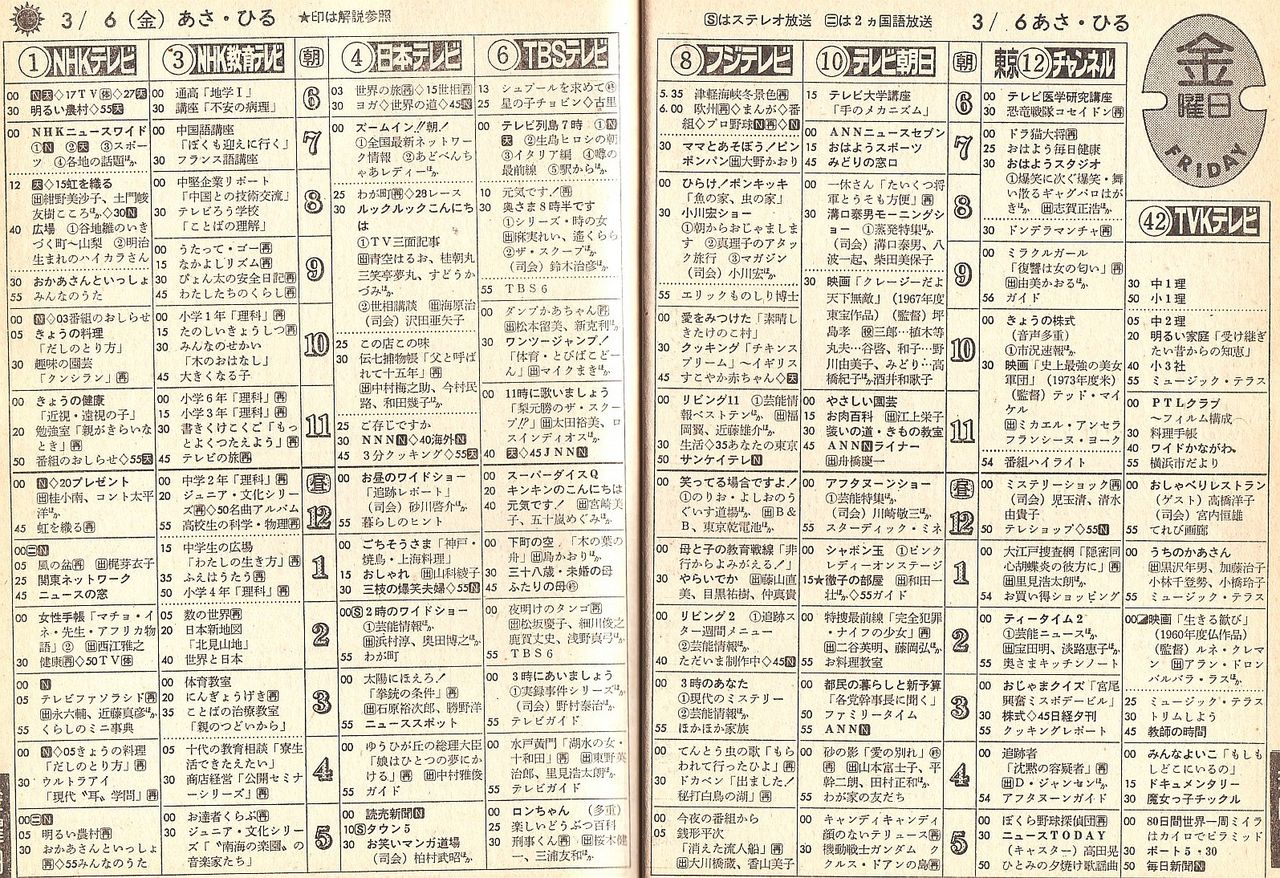 3/ 6(金)あさ・ひる ★印は解説参照
Ⓢはステレオ放送 ㊁は2ヵ国語放送 3/ 6あさ・ひる
金
曜日
FRIDAY
① NHKテレビ
00 N天◇17TV体◇27天
30 明るい農村◇55天
00 NHKニュースワイド
①N ②天 ③スポー
ツ ④各地の話題ほか
12 天◇15虹を織る
出紺野美沙子、土門峻
友樹こころほか◇30N
40 広場 ①谷地雛のいき
づく町〜山梨 ②明治
生まれのハイカラさん
30 おかあさんといっしょ
55 みんなのうた
00 N◇03番組のおしらせ
05 きょうの料理
「だしのとり方」
30 趣味の園芸
「クンシラン」再
00 きょうの健康
「近視・遠視の子」
20 勉強室「親がきらいな
とき」再
50 番組のおしらせ◇55天
00 N◇20プレゼント
出桂小南、コント太平
洋ほか
45 虹を織る再
00㊁N
05 風の盆再 出梶芽衣子
25 関東ネットワーク
45 ニュースの窓
00 女性手帳「マチョ・イ
ネ・先生・アフリカ物
語」② 出西江雅之
30 健康再◇50TV体
00 N
05 テレビファソラシド再
出永六輔、近藤真彦ほか
55 くらしのミニ事典
00 N◇05きょうの料理
「だしのとり方」再
30 ウルトラアイ
「現代〝耳〟学問」再
00㊁N
05 明るい農村再
30 おかあさんといっしょ
再◇55みんなのうた
③ NHK教育テレビ
00 通高「地学Ⅰ」
30 講座「不安の病理」
00 中国語講座
「ぼくも迎えに行く」
30 フランス語講座
00 中堅企業リポート
「中国との技術交流」
30 テレビろう学校
「ことばの理解」
00 うたって・ゴー再
15 なかよしリズム再
30 ぴょん太の安全日記再
45 わたしたちのくらし再
00 小学1年「理科」再
15 たのしいきょうしつ再
30 みんなのせかい
「木のおはなし」
45 大きくなる子
00 小学6年「理科」再
15 小学3年「理科」再
30 書きくけこくご「もっ
とよくつたえよう」再
45 テレビの旅再
00 中学2年「理科」再
20 ジュニア・文化シリー
ズ再◇50名曲アルバム
55 高校生の科学・物理再
15 中学生の広場
「わたしの生き方」再
35 ふえはうたう再
50 小学4年「理科」再
05 数の世界再
20 日本新地図
「北見山地」
40 世界と日本
00 体育教室
20 にんぎょうげき再
35 ことばの治療教室
「親のつどいから」
05 十代の教育相談「寮生
活できたえたい」
30 商店経営「公開セミナ
ーシリーズ」再
00 お達者くらぶ再
30 ジュニア・文化シリー
ズ「〝南海の楽園〟の
音楽家たち」
朝
6
7
8
9
10
11
昼
12
1
2
3
4
5
④ 日本テレビ
03 世界の旅再◇15世相再
30 ヨガ◇世界の道◇45N
00 ズームイン!!朝!
①全国最新ネットワー
ク情報 ②あどべんち
ゃあレディーほか
25 わが町再◇28レース
30 ルックルックこんにち
は
①TV三面記事
出青空はるお、桂朝丸
三笑亭夢丸、すどうか
づみほか
②世相講談 出海原治
(司会)沢田亜矢子
25 この店この味
30 伝七捕物帳「父と呼ば
れて十五年」再
出中村梅之助、今村民
路、和田幾子ほか
25 ご存じですか
30 NNN◇40海外N
45 3分クッキング◇55天
00 お昼のワイドショー
「追跡レポート」
(司会)砂川啓介ほか
55 暮らしのヒント
00 ごちそうさま「神戸・
焼鳥・上海料理」
15 おしゃれ 出山科綾子
30 三枝の爆笑夫婦◇55N
00Ⓢ2時のワイドショー
①芸能情報ほか
出浜村淳、奥田博之ほか
55 わが町
00 太陽にほえろ!
「拳銃の条件」再
出石原裕次郎、勝野洋
55 ニューススポット
00 ゆうひが丘の総理大臣
「娘はひとつの夢にか
ける」再 出中村雅俊
55 ガイド
00 読売新聞N
10Ⓢタウン5
30 お笑いマンガ道場
(司会)柏村武昭ほか
⑥ TBSテレビ
13 シュプールを求めて
25 星の子チョビン◇古里
00 テレビ列島7時 ①N
天 ②生島ヒロシの朝
③イタリア編 ④噂の
最前線 ⑤駅からほか
10 元気です!再
30 奥さま8時半です
①シリーズ・時の女
出麻実れい、遙くらら
②ザ・スクープほか
(司会)鈴木治彦ほか
55 TBS6
00 ダンプかあちゃん再
出松本留美、新克利ほか
30 ワンツージャンプ!
「体育・とびばこどー
ん」出マイクまきほか
00 11時に歌いましょう
「梨元勝のザ・スクー
プ!!」出太田裕美、ロ
スインディオスほか
40 天◇45JNN
00 スーパーダイスQ
20 キンキンのこんにちは
40 元気です! 出宮崎美
子、五十嵐めぐみほか
00 下町の空「木の葉の
舟」出島かおりほか
30 三十八歳・未婚の母
45 ふたりの母
00 夜明けのタンゴ再
出松坂慶子、細川俊之
鹿賀丈史、浅野真弓ほか
55 TBS6
00 3時にあいましょう
①実録事件シリーズほか
(司会)野村泰治ほか
55 テレビガイド
00 水戸黄門「湖水の女・
十和田」再 出東野英
治郎、里見浩太朗ほか
55 テレビガイド
00 ロンちゃん (多重)
25 楽しいどうぶつ百科
30 刑事くん再 出桜木健
一、三浦友和ほか
⑧ フジテレビ
5.35 津軽海峡冬景色再
6.00 欧州再◇まんが◇番
組◇プロ野球N再◇N
30 ママとあそぼう!ピン
ポンパン 出大野かおり
00 ひらけ!ポンキッキ
「魚の家、虫の家」
30 小川宏ショー
①朝からおじゃましま
す ②真理子のアタッ
ク旅行 ③マガジン
(司会)小川宏ほか
55 エリックものしり博士
00 愛をみつけた「素晴し
きたけのこ村」
30 クッキング「チキンス
プリーム」〜イギリス
45 すこやか赤ちゃん◇天
00 リビング11 ①芸能情
報ベストテンほか 出福
岡翼、近藤雄介ほか
30 生活◇35あなたの東京
50 サンケイテレN
00 笑ってる場合ですよ!
①のりお・よしおのう
ぐいす道場ほか 出B&
B、東京乾電池ほか
00 母と子の教育戦線「非
行からよみがえる!」
30 やらいでか 出藤山直
美、目黒祐樹、仲真貴
00 リビング2 ①追跡ス
ター週間メニュー
②芸能情報ほか
40 ただいま制作中◇45N
00 3時のあなた
①現代のミステリー
②芸能情報ほか
55 ほかほか家族
00 てんとう虫の歌「もら
われて行ったひよ」再
30 ドカベン「出ました!
秘打白鳥の湖」再
00 今夜の番組から
05 銭形平次
「消えた流人船」再
出大川橋蔵、香山美子
⑩ テレビ朝日
15 テレビ大学講座
「手のメカニズム」
00 ANNニュースセブン
15 おはようスポーツ
45 みどりの窓口
00 一休さん「たいくつ将
軍とうそも方便」再
30 溝口泰男モーニングシ
ョー ①蒸発特集ほか
(司会)溝口泰男、八
波一起、柴田美保子
30 映画「クレージーだよ
天下無敵」(1967年度
東宝作品)(監督)坪
島孝 役三郎…植木等
丸夫…谷啓、和子…野
川由美子、みどり…高
橋紀子ほか酒井和歌子
00 やさしい園芸
15 お肉百科 出江上栄子
30 装いの道・きもの教室
45 ANNライナー
出舟橋慶一
00 アフタヌーンショー
①芸能特集ほか
(司会)川崎敬三ほか
55 スターディック・ミネ
00 シャボン玉 ①ピンク
レディーオンステージ
15★徹子の部屋 出和田一
壮ほか◇55ガイド
00 特捜最前線「完全犯罪
・ナイフの少女」再
出二谷英明、藤岡弘ほか
55 お料理教室
00 都民の暮らしと新予算
「各党幹事長に聞く」
50 ファミリータイム
55 ANN
00 砂の影「愛の別れ」
出山本富士子、平
幹二朗、田村正和ほか
55 わが家の友だち
00 キャンディキャンディ
顔のないテリュース再
30 機動戦士ガンダム ク
クルス・ドアンの島再
東京⑫チャンネル
00 テレビ医学研究講座
30 恐竜戦隊コセイドン再
00 ドラ猫大将再
25 おはよう毎日健康
30 おはようスタジオ
①爆笑に次ぐ爆笑・舞
い散るギャグパロはが
きほか 出志賀正浩ほか
30 ドンデラマンチャ再
00 ミラクルガール
「復讐は女の匂い」再
出由美かおるほか
56 ガイド
00 きょうの株式
(音声多重)
①市況速報ほか
30 映画「史上最強の美女
軍団」(1973年度米)
(監督)テッド・マイ
ケル
出ミカエル・アンセラ
フランシーヌ・ヨーク
54 番組ハイライト
00 ミステリーショック再
(司会)児玉清、清水
由貴子
50 テレショップ◇55N
00 大江戸捜査網「隠密同
心胡蝶炎の彼方に」再
出里見浩太朗ほか
54 お買い得ショッピング
00 ティータイム2
①芸能ニュースほか
出宝田明、淡路恵子ほか
55 奥さまキッチンノート
00 おじゃまクイズ「宮尾
興奮ミスボデービル」
30 株式◇45日経夕刊
55 クッキングレポート
00 追跡者
「沈黙の容疑者」再
出D・ジャンセンほか
54 アフタヌーンガイド
00 ぼくら野球探偵団再
30 ニュースTODAY
(キャスター)高田晃
50 ひとみの夕焼け歌謡曲
㊷ TVKテレビ
30 中1理
50 小1理
05 中2理
20 明るい家庭「受け継ぎ
たい昔からの知恵」
40 小3社
55 ミュージック・テラス
00 PTLクラブ
〜フィルム構成〜
30 料理手帳
40 ワイドかながわ
55 横浜市だより
00 おしゃべりレストラン
(ゲスト)高橋洋子
(司会)宮内恒雄
55 てれび画廊
00 うちのかあさん
出黒沢年男、加藤治子
小林千登勢、小橋玲子
55 ミュージック・テラス
00 映画「生きる歓び」
(1960年度仏作品)
(監督)ルネ・クレマ
ン 出アラン・ドロン
バルバラ・ラスほか
25 ミュージック・テラス
30 トリムしよう
45 教師の時間
00 みんなよいこ「もしも
しどこにいるの」
15 ドキュメンタリー
30 魔女っ子チックル
00 80日間世界一周ミイラ
はカイロでピラミッド
30 ポート5・30
50 毎日新聞N